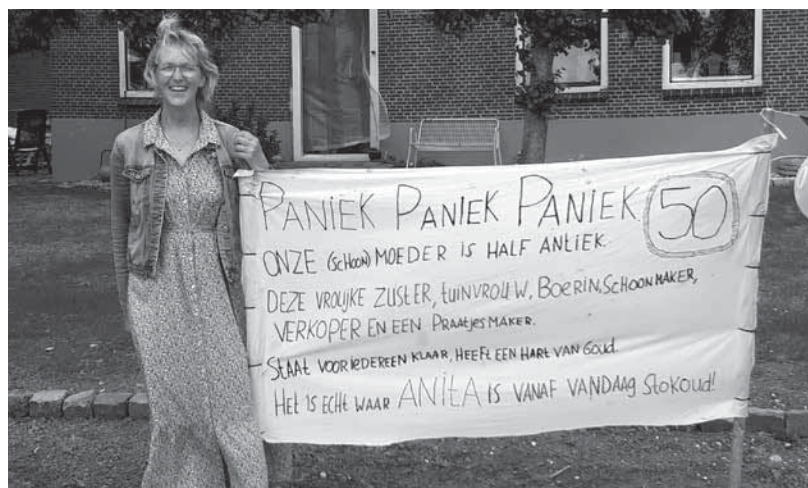 PANIEK PANIEK PANIEK 50
ONZE (SCHOON) MOEDER IS HALF ANTIEK.
DEZE VROLIJKE ZUSTER, TUINVROUW, BOERIN, SCHOONMAKER,
VERKOPER EN EEN PRAATJESMAKER.
STAAT VOOR IEDEREEN KLAAR, HEEFT EEN HART VAN GOUD.
HET IS ECHT WAAR ANITA IS VANAF VANDAAG STOKOUD!